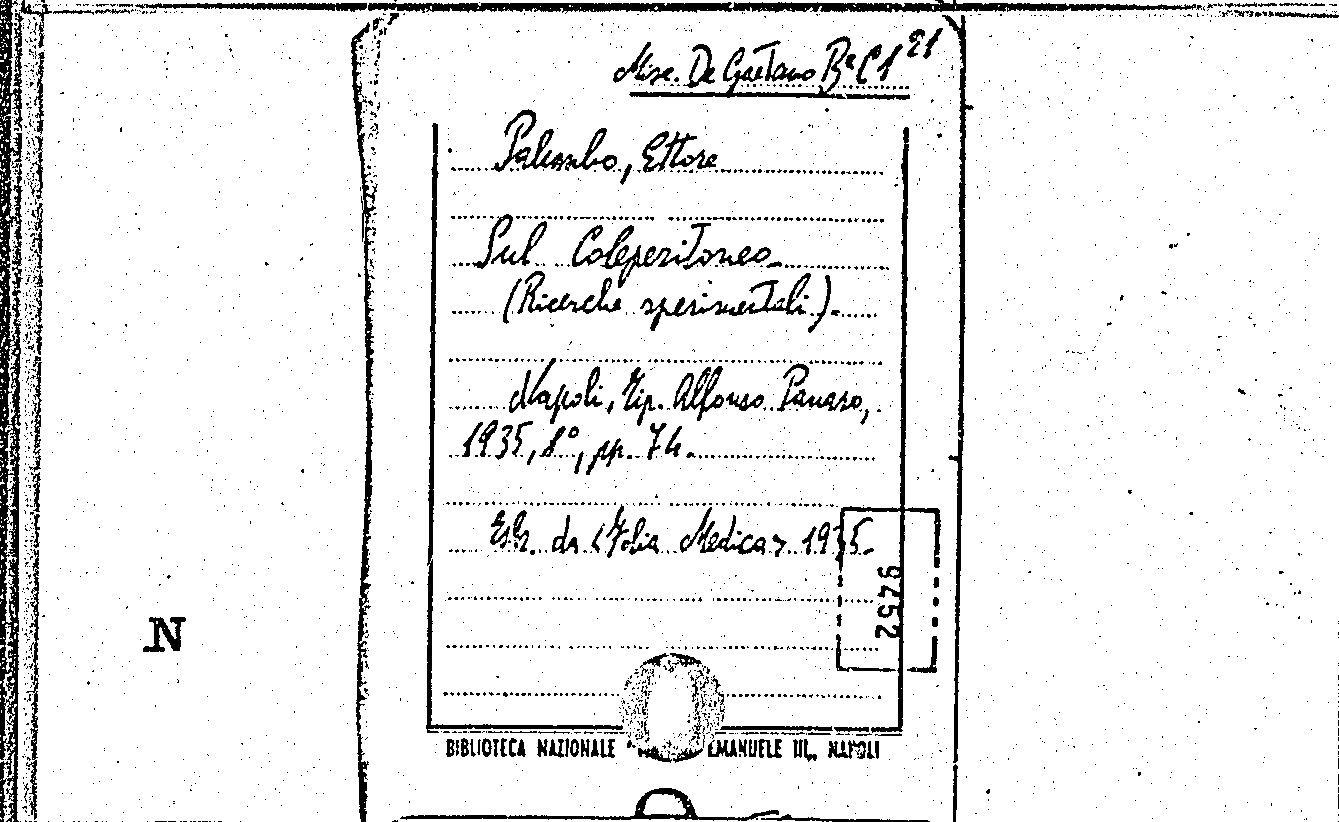 Misc. De Gaetano Bª C1 21
Palumbo, Ettore
Sul Coleperitoneo
(Ricerche sperimentali).
Napoli, Tip. Alfonso
1935, 8°, pp. 74.
Estr. da «Folia Medica» 1935.
9452
N
BIBLIOTECA NAZIONALE EMANUELE III, NAPOLI